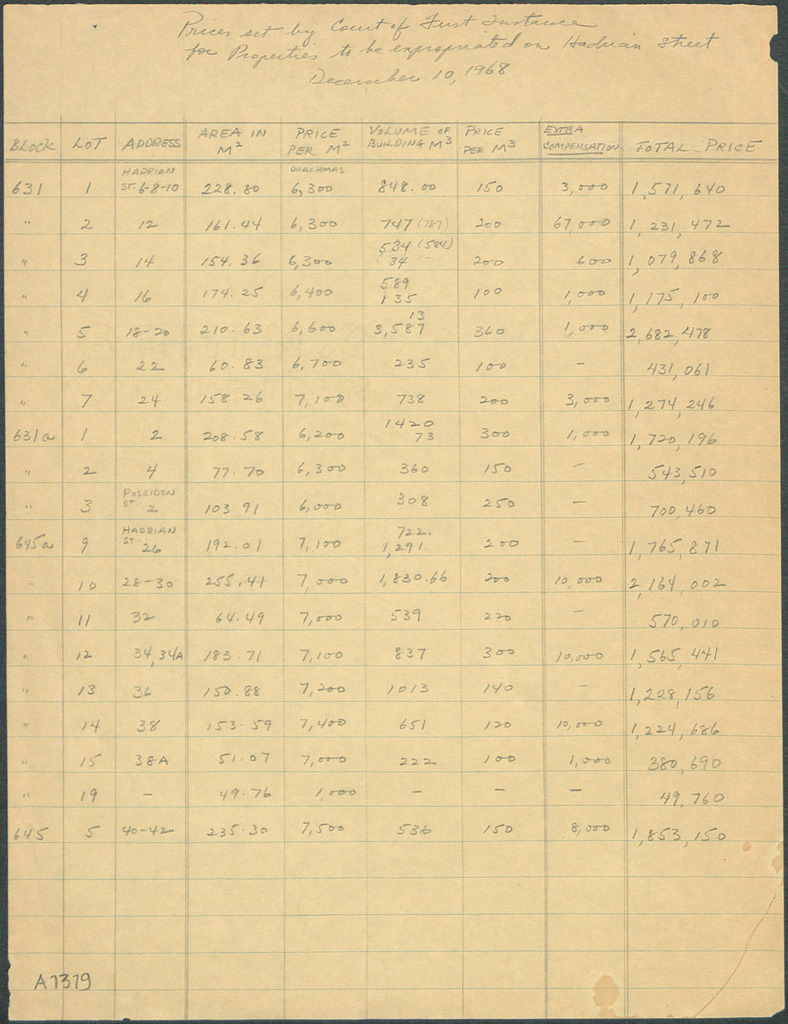 Prices set by Court of First Instance
for Properties to be expropriated on Hadrian Street
December 10, 1968
BLOCK LOT ADDRESS AREA IN M² PRICE PER M² VOLUME OF BUILDING M³ PRICE PER M³ EXTRA COMPENSATION TOTAL PRICE
HADRIAN DRACHMAS
631 1 ST. 6-8-10 228.80 6,300 848.00 150 3,000 1,571,640
" 2 12 161.44 6,300 747 (787) 200 67,000 1,231,472
534 (584)
" 3 14 154.36 6,300 34 200 600 1,079,868
589
" 4 16 174.25 6,400 135 100 1,000 1,175,100
13
" 5 18-20 210.63 6,600 3,587 360 1,000 2,682,478
" 6 22 60.83 6,700 235 100 – 431,061
" 7 24 158.26 7,100 738 200 3,000 1,274,246
1420
631a 1 2 208.58 6,200 73 300 1,000 1,720,196
" 2 4 77.70 6,300 360 150 – 543,510
POSEIDON
" 3 ST. 2 103.91 6,000 308 250 – 700,460
HADRIAN 722.
645a 9 ST. 26 192.01 7,100 1,291. 200 – 1,765,871
" 10 28-30 255.41 7,000 1,830.66 200 10,000 2,164,002
" 11 32 64.49 7,000 539 220 – 570,010
" 12 34,34A 183.71 7,100 837 300 10,000 1,565,441
" 13 36 150.88 7,200 1013 140 – 1,228,156
" 14 38 153.59 7,400 651 120 10,000 1,224,686
" 15 38A 51.07 7,000 222 100 1,000 380,690
" 19 – 49.76 1,000 – – – 49,760
645 5 40-42 235.30 7,500 536 150 8,000 1,853,150
A1319